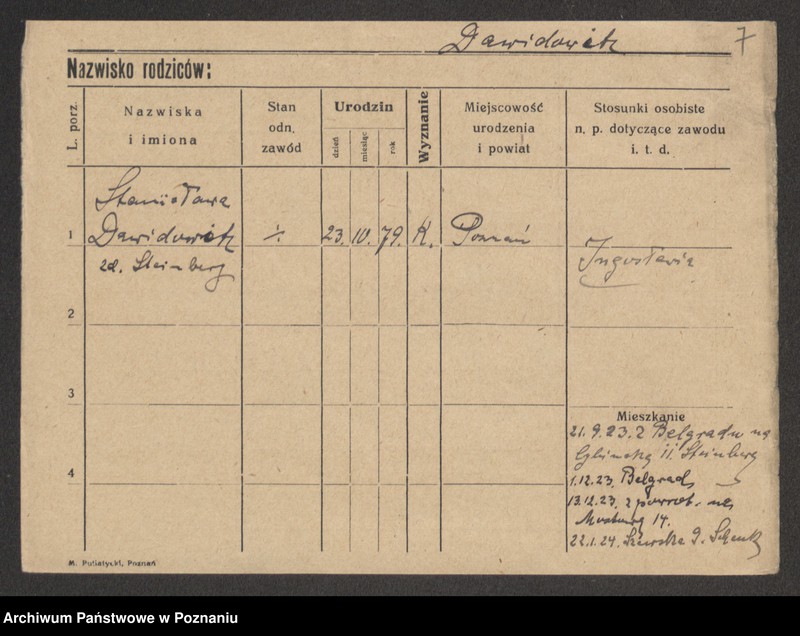 Dawidowicz 7
Nazwisko rodziców:
L. porz.
Nazwiska
i imiona
Stan
odn.
zawód
Urodzin
dzień
miesiąc
rok
Wyznanie
Miejscowość
urodzenia
i powiat
Stosunki osobiste
n. p. dotyczące zawodu
i. t. d.
Stanisława
1 Dawidowicz ./. 23. 10. 79. K. Poznań
zd. Steinberg
Jugosławia
2
3
4
Mieszkanie
21. 9. 23. z Belgradu na
11 Steinberg
1.12.23. Belgrad
13.12.23. z powrot. na
14.
22.1.24. Szewska 9.
M. Putiatycki, Poznań
Archiwum Państwowe w Poznaniu